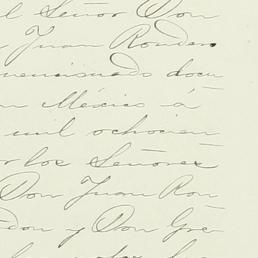 l Señor Don
Juan Rondero
mencionado docu
n México á
mil ochocien
r los Señores
Don Juan Ron
don y Don Gre